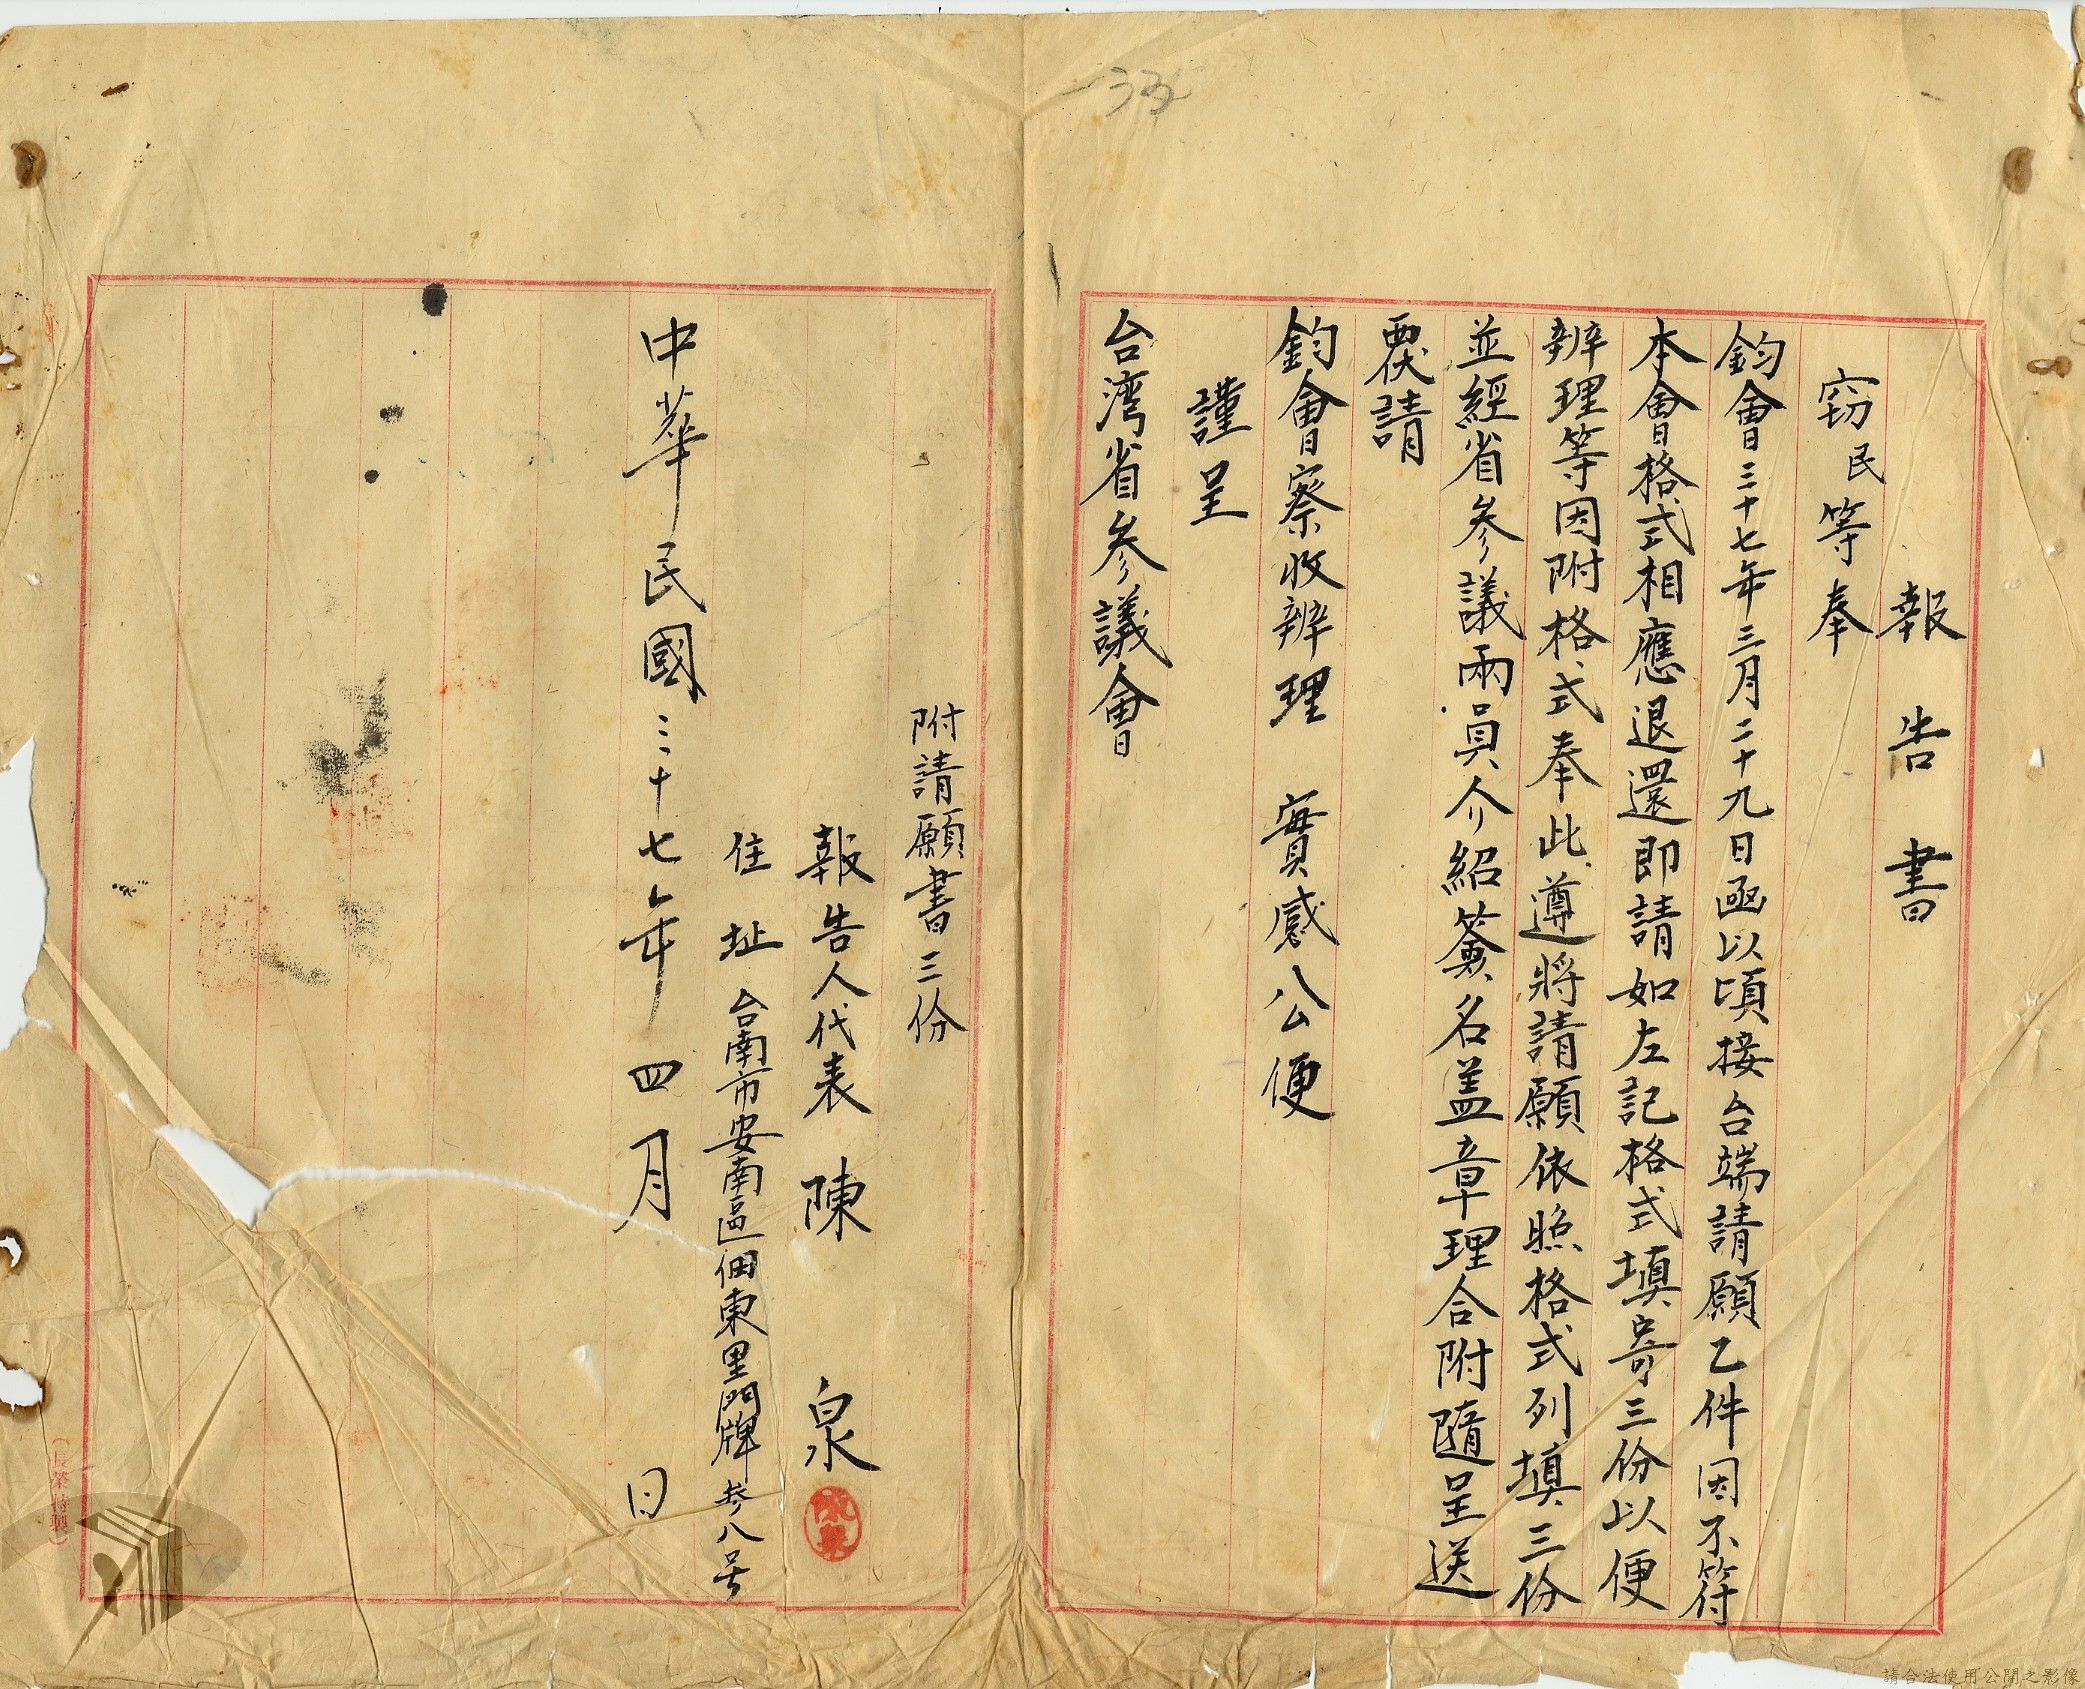 報告書
窃民等奉
鈞會三十七年三月二十九日函以頃接台端請願乙件因不符
本會格式相應退還即請如左記格式填寄三份以便
辦理等因附格式奉此遵將請願依照格式列填三份
並經省參議兩員介紹簽名盖章理合附隨呈送
覆請
鈞會察收辦理 實感公便
謹呈
台湾省參議會
附請願書三份
報告人代表 陳泉
住址 台南市安南區佃東里門牌參八号
中華民國三十七年四月 日
(長榮特製)
請合法使用公開之影像